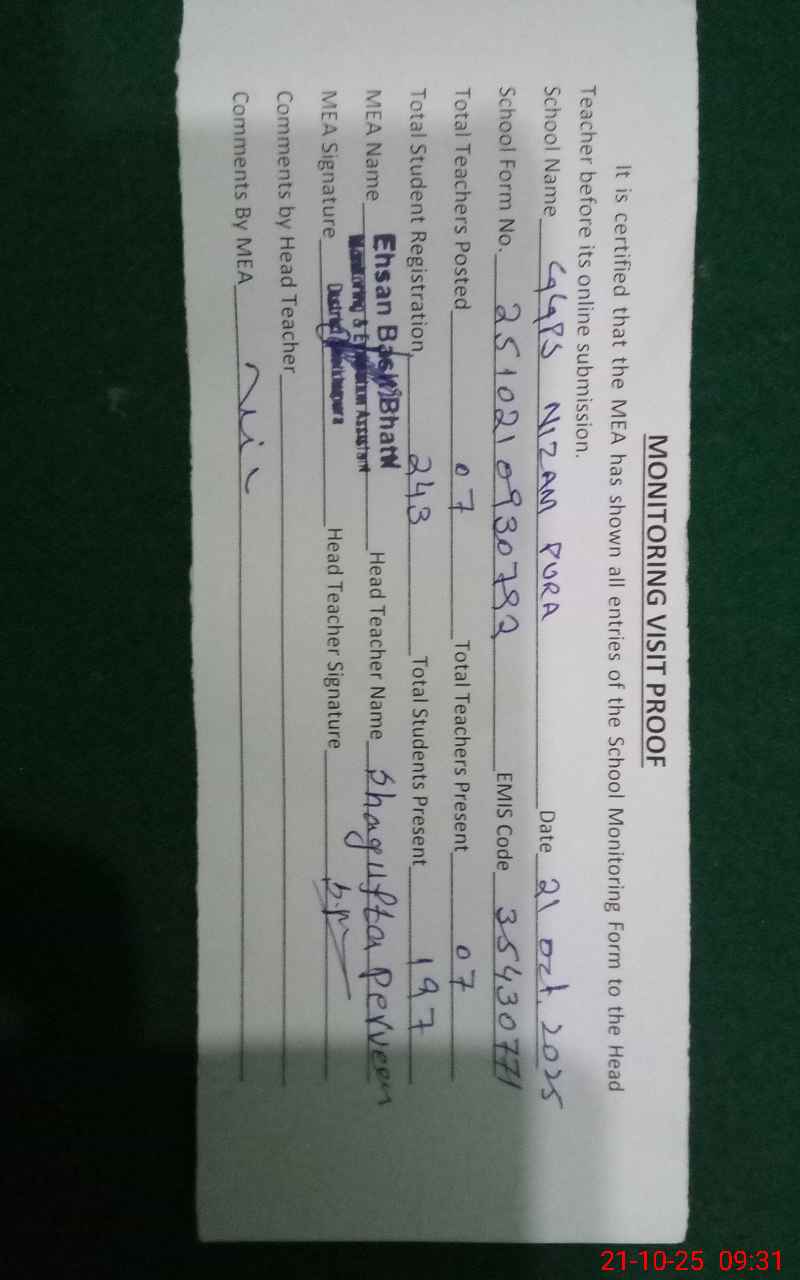 MONITORING VISIT PROOF
It is certified that the MEA has shown all entries of the School Monitoring Form to the Head
Teacher before its online submission.
School Name GGPS NIZAM PURA Date 21 Oct. 2025
School Form No. 2510210930782 EMIS Code 35430771
Total Teachers Posted 07 Total Teachers Present 07
Total Student Registration 243 Total Students Present 197
MEA Name Ehsan Bhatti Head Teacher Name Shagufta Perveen
Monitoring & Evaluation Assistant
MEA Signature District Head Teacher Signature
Comments by Head Teacher
Comments By MEA Nil
21-10-25 09:31